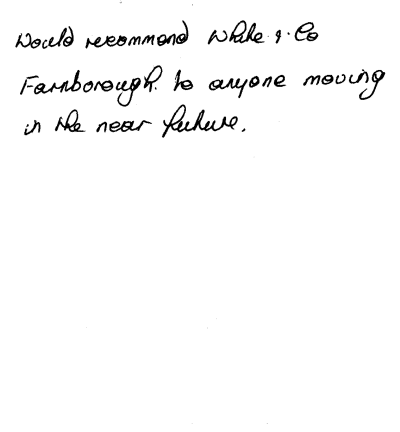 Would recommend White & Co
Farnborough. to anyone moving
in the near future.